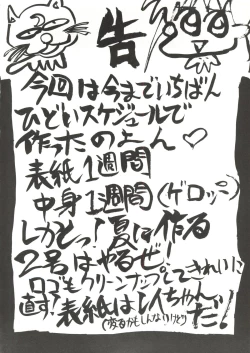 告
今回は今までいちばん
ひどいスケジュールで
作ったのよん♡
表紙1週間
中身1週間(ゲロッパ)
しかとっ!夏は作る
2号はやるぜ!
ロゴもクリーンナップしてきれいに
直す!表紙はレイちゃんだ!
(変るかもしんないけど)